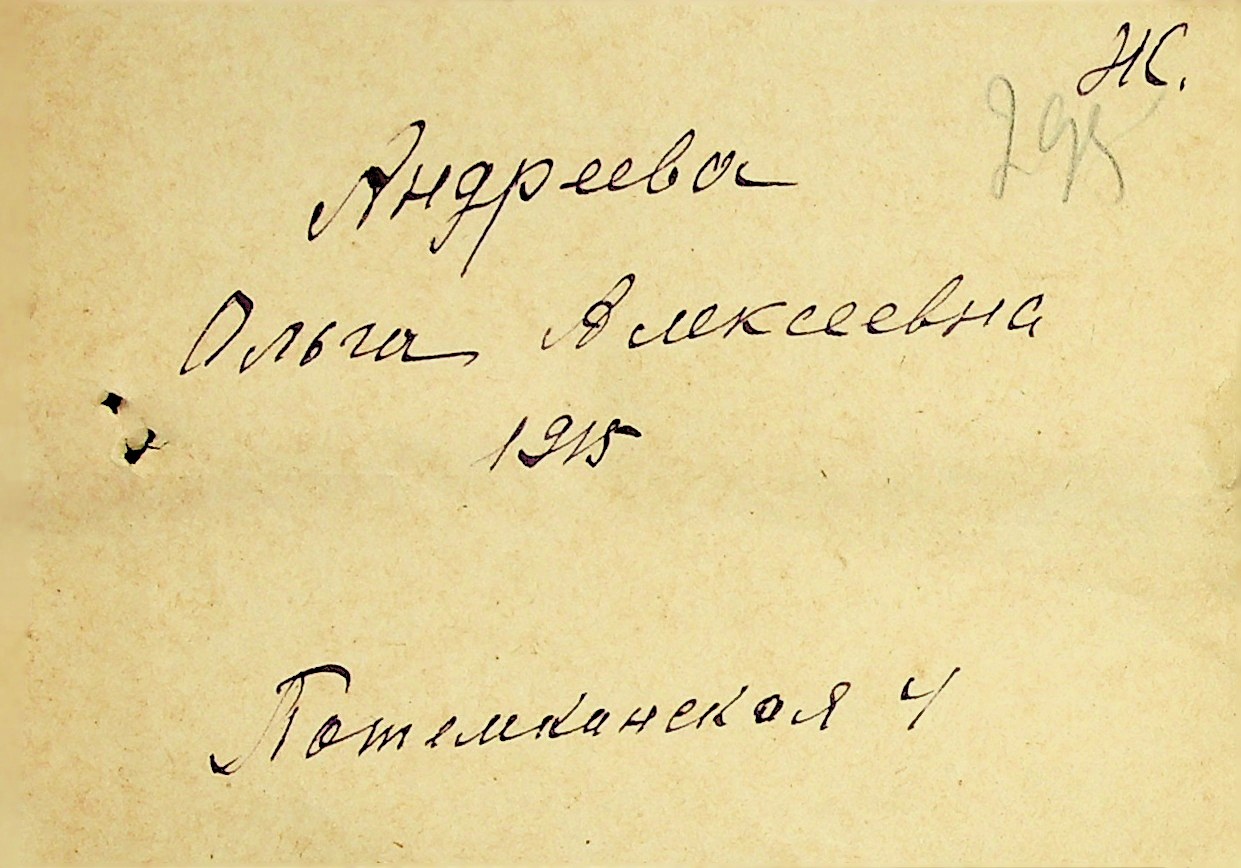 Ж.
295
Андреева
Ольга Алексеевна
1915
Потемкинская 4